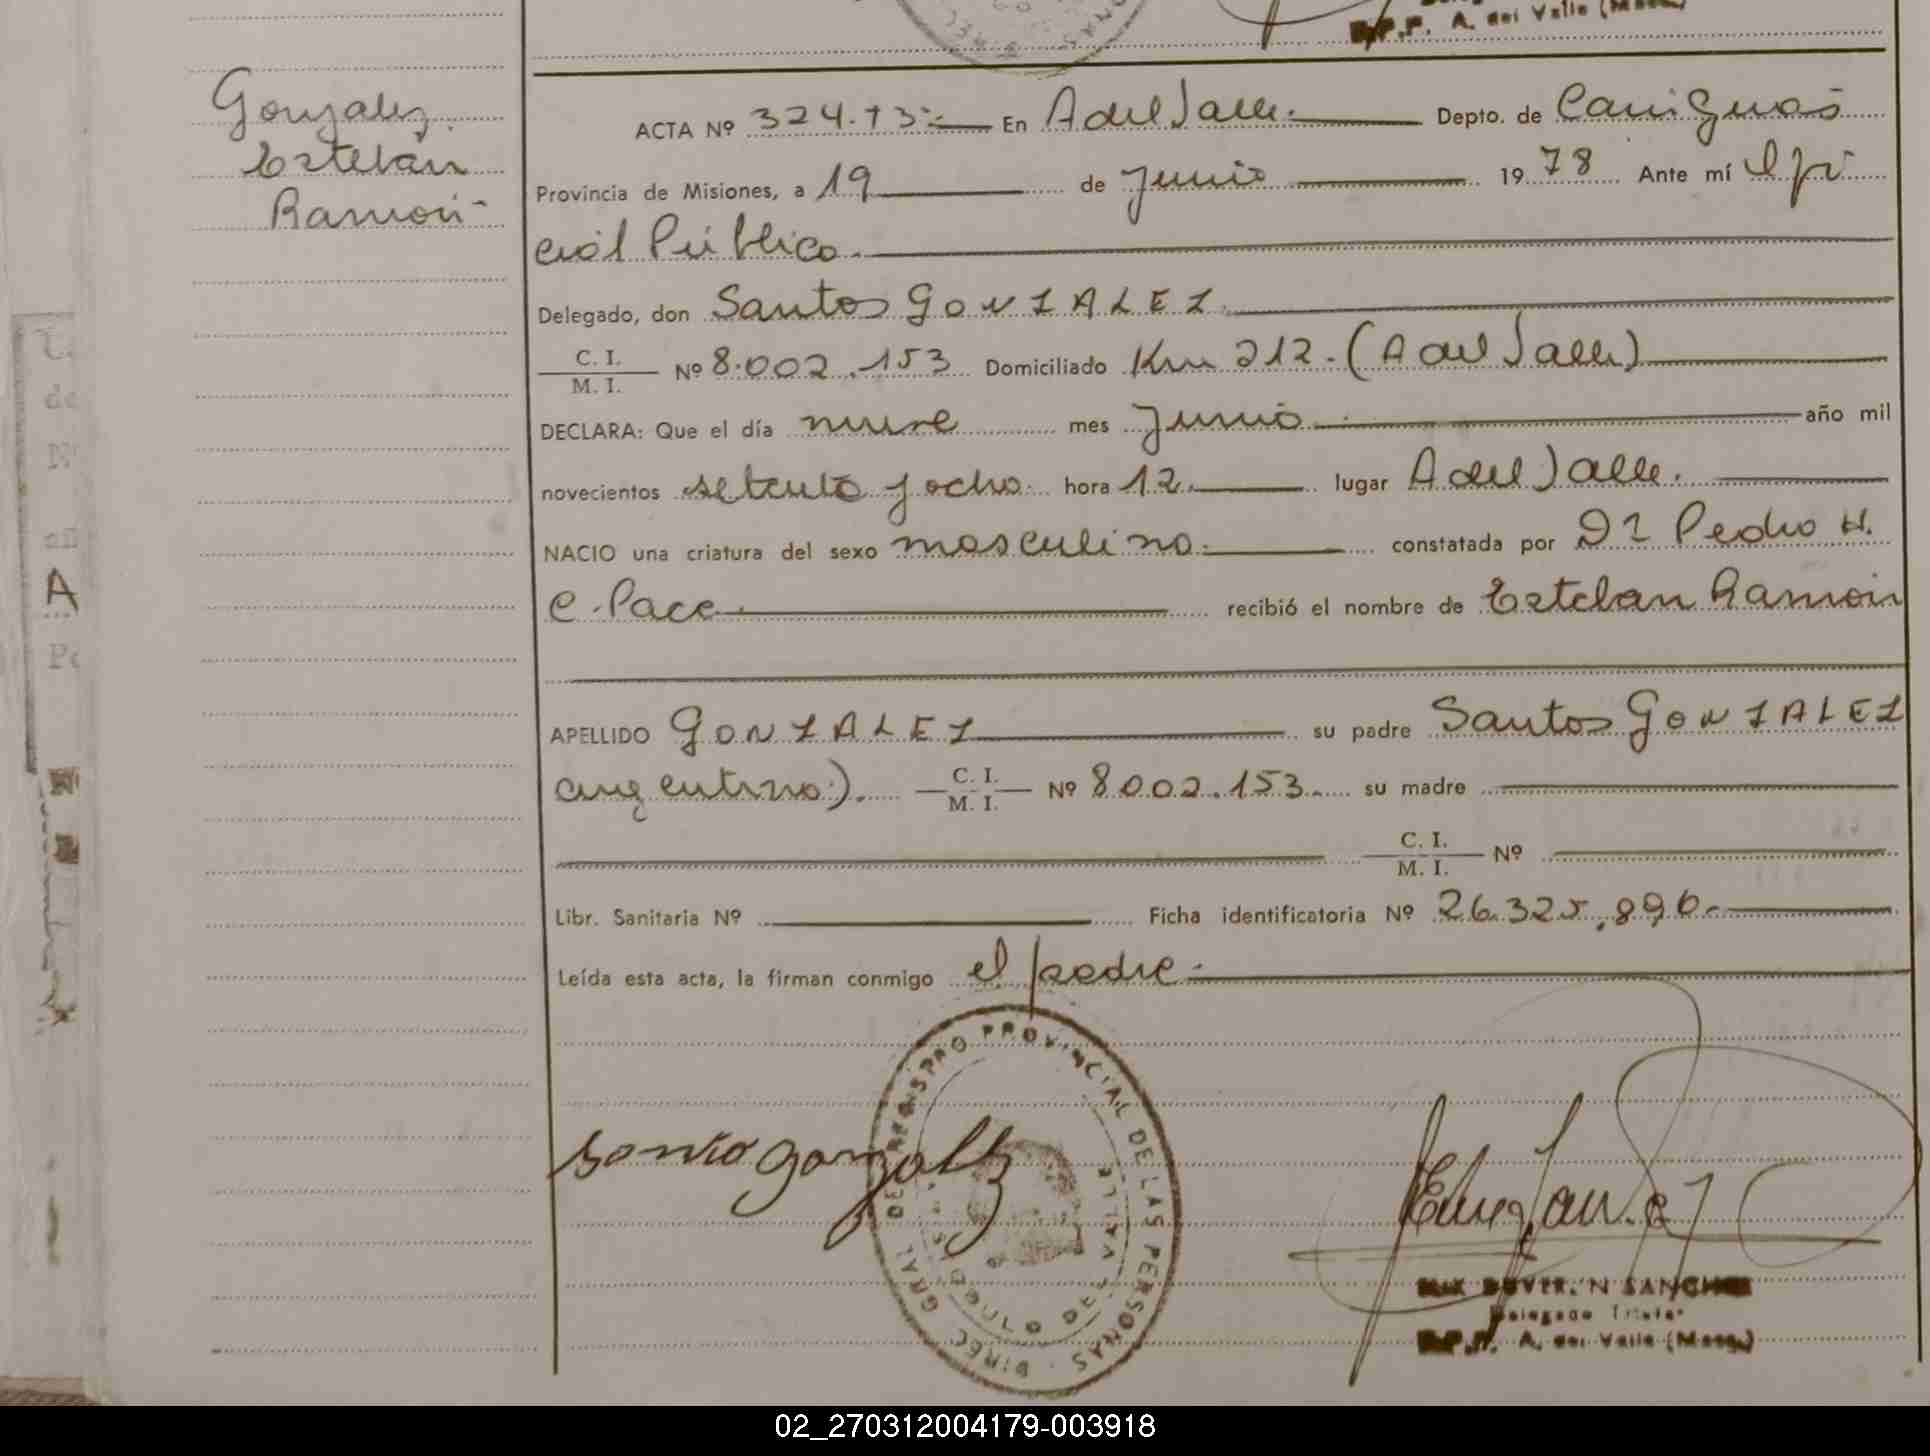 A. del Valle (
González
Esteban
Ramón
ACTA Nº 324.T3: En A del Valle. Depto. de Cainguás
Provincia de Misiones, a 19 de Junio 1978 Ante mí Ofi
cial Público.
Delegado, don Santos GONZALEZ
C. I.
M. I. Nº 8.002.153 Domiciliado Km 212. (A del Valle)
DECLARA: Que el día nueve mes Junio año mil
novecientos setenta y ocho hora 12. lugar A del Valle.
NACIO una criatura del sexo masculino. constatada por Dr Pedro H.
C. Pace. recibió el nombre de Esteban Ramón
APELLIDO GONZALEZ su padre Santos GONZALEZ
argentino). C. I.
M. I. Nº 8.002.153. su madre
C. I.
M. I. Nº
Libr. Sanitaria Nº Ficha identificatoria Nº 26.325.896.
Leída esta acta, la firman conmigo el padre.
DIREC. GRAL DE REGISTRO PROVINCIAL DE LAS PERSONAS
DEL VALLE
Santo Gonzalez
SANCHEZ
Delegado Titular
A. del Valle (
02_270312004179-003918